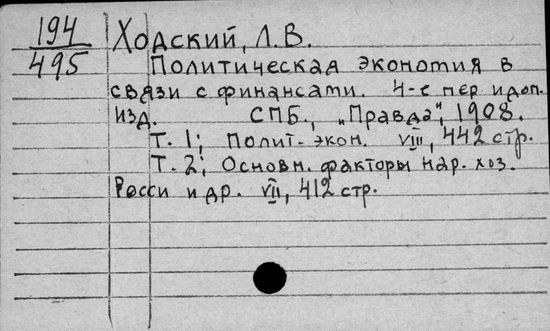 194
495
Ходский, Л.В.
Политическая экономия в
связи с финансами. 4-е пер и доп.
изд. СПБ., „Правда", 1908.
Т. 1; Полит.-экон. VIII, 442 стр.
Т. 2; Основн. факторы нар. хоз.
Росси и др. VII, 412 стр.